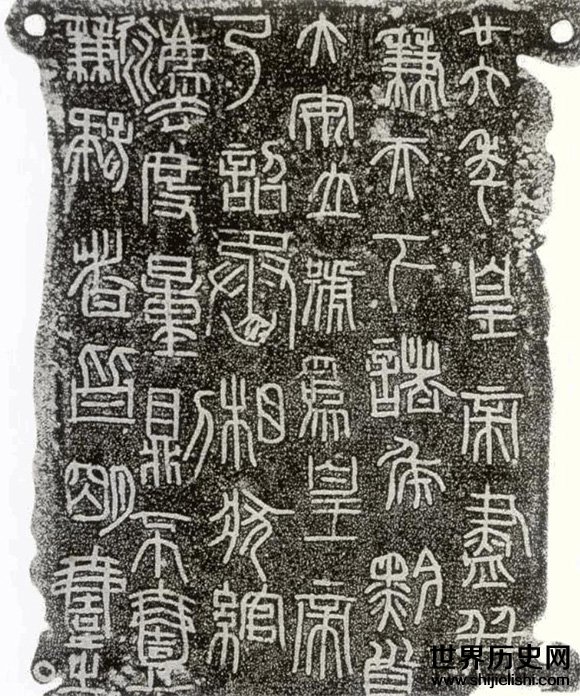 廿六年皇帝盡并
兼天下諸侯黔首
大安立號為皇帝
乃詔丞相狀綰
灋度量則不壹
歉疑者皆明壹之
世界历史网
www.shijielishi.com